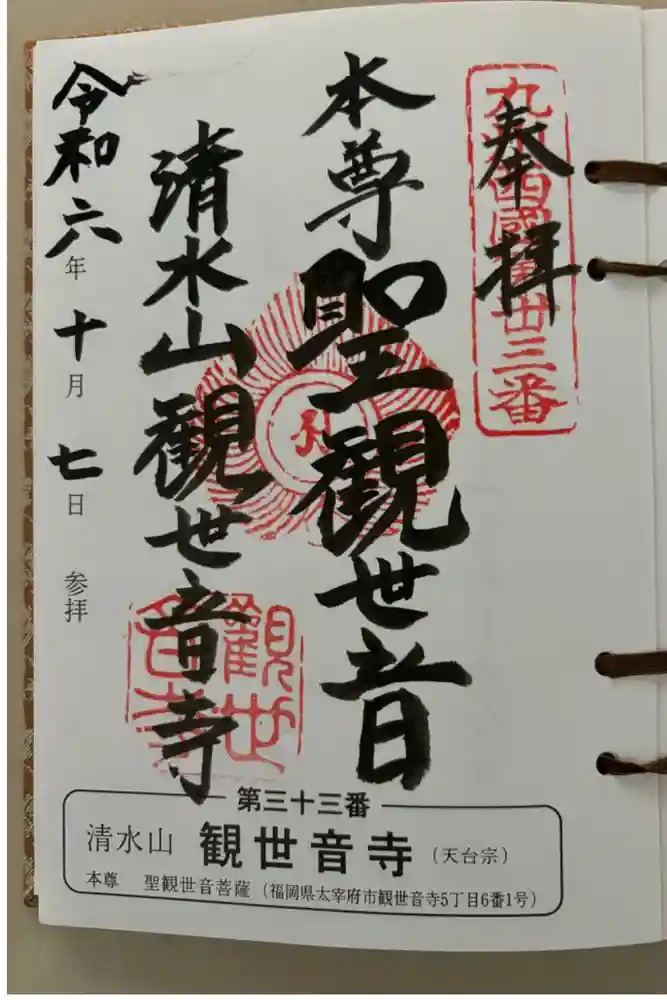 奉拝
九州西國第卅三番
本尊聖観世音
清水山観世音寺
観世音寺
令和六年十月七日参拝
第三十三番
清水山 観世音寺(天台宗)
本尊 聖観世音菩薩(福岡県太宰府市観世音寺5丁目6番1号)